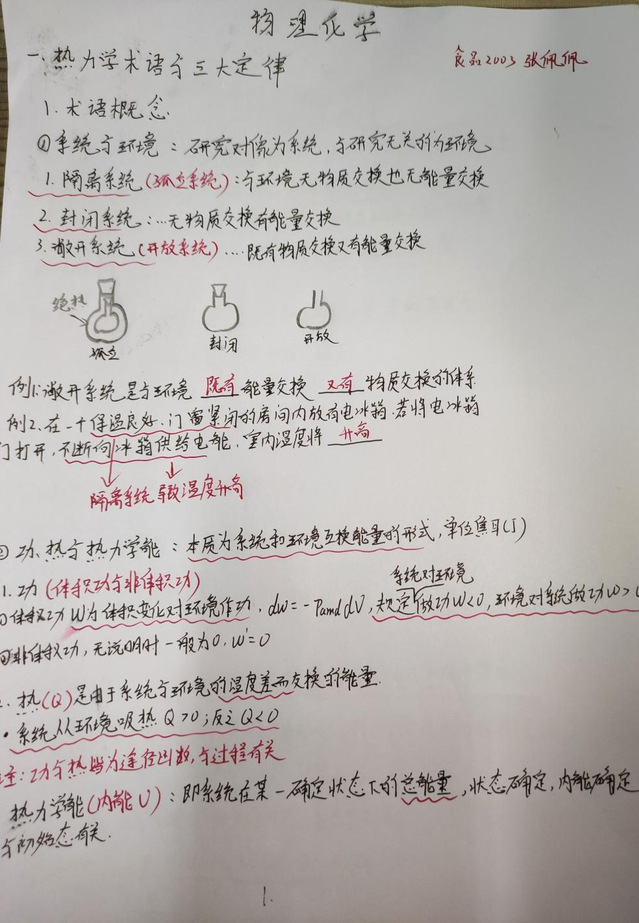 物理化学
一.热力学术语与三大定律
食品2003 张佩佩
1.术语概念
①系统与环境：研究对象为系统,与研究无关的为环境
1.隔离系统(孤立系统):与环境无物质交换也无能量交换
2.封闭系统:...无物质交换有能量交换
3.敞开系统(开放系统)....既有物质交换又有能量交换
绝热
孤立
封闭
开放
例1:敞开系统是与环境 既有 能量交换 又有 物质交换的体系
例2.在一个保温良好.门窗紧闭的房间内放有电冰箱.若将电冰箱
门打开,不断向冰箱供给电能,室内温度将 升高
隔离系统 导致温度升高
②功.热与热力学能:本质为系统和环境互换能量的形式,单位焦耳(J)
1.功(体积功与非体积功)
系统对环境
①体积功W为体积变化对环境作功. dW=-Pamb dV,规定做功W<0,环境对系统做功W>0
②非体积功,无说明时一般为0.W'=0
2.热(Q)是由于系统与环境的温度差而交换的能量.
·系统从环境吸热Q>0;反之Q<0
注:功与热皆为途径函数,与过程有关
热力学能(内能U):即系统在某一确定状态下的总能量,状态确定,内能确定
与初始态有关.
1.